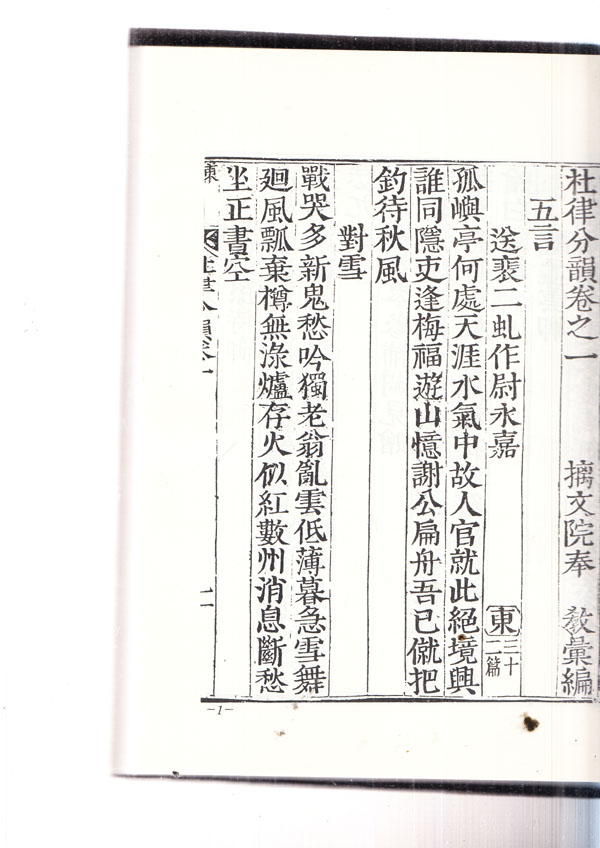 杜律分韻卷之一　摛文院奉　敎彙編
五言
送裵二虬作尉永嘉　東三十二篇
孤嶼亭何處天涯水氣中故人官就此絕境興
誰同隱吏逢梅福遊山憶謝公扁舟吾已僦把
釣待秋風
對雪
戰哭多新鬼愁吟獨老翁亂雲低薄暮急雪舞
廻風瓢棄樽無淥爐存火似紅數州消息斷愁
坐正書空
東　杜律分韻卷一　一
-1-